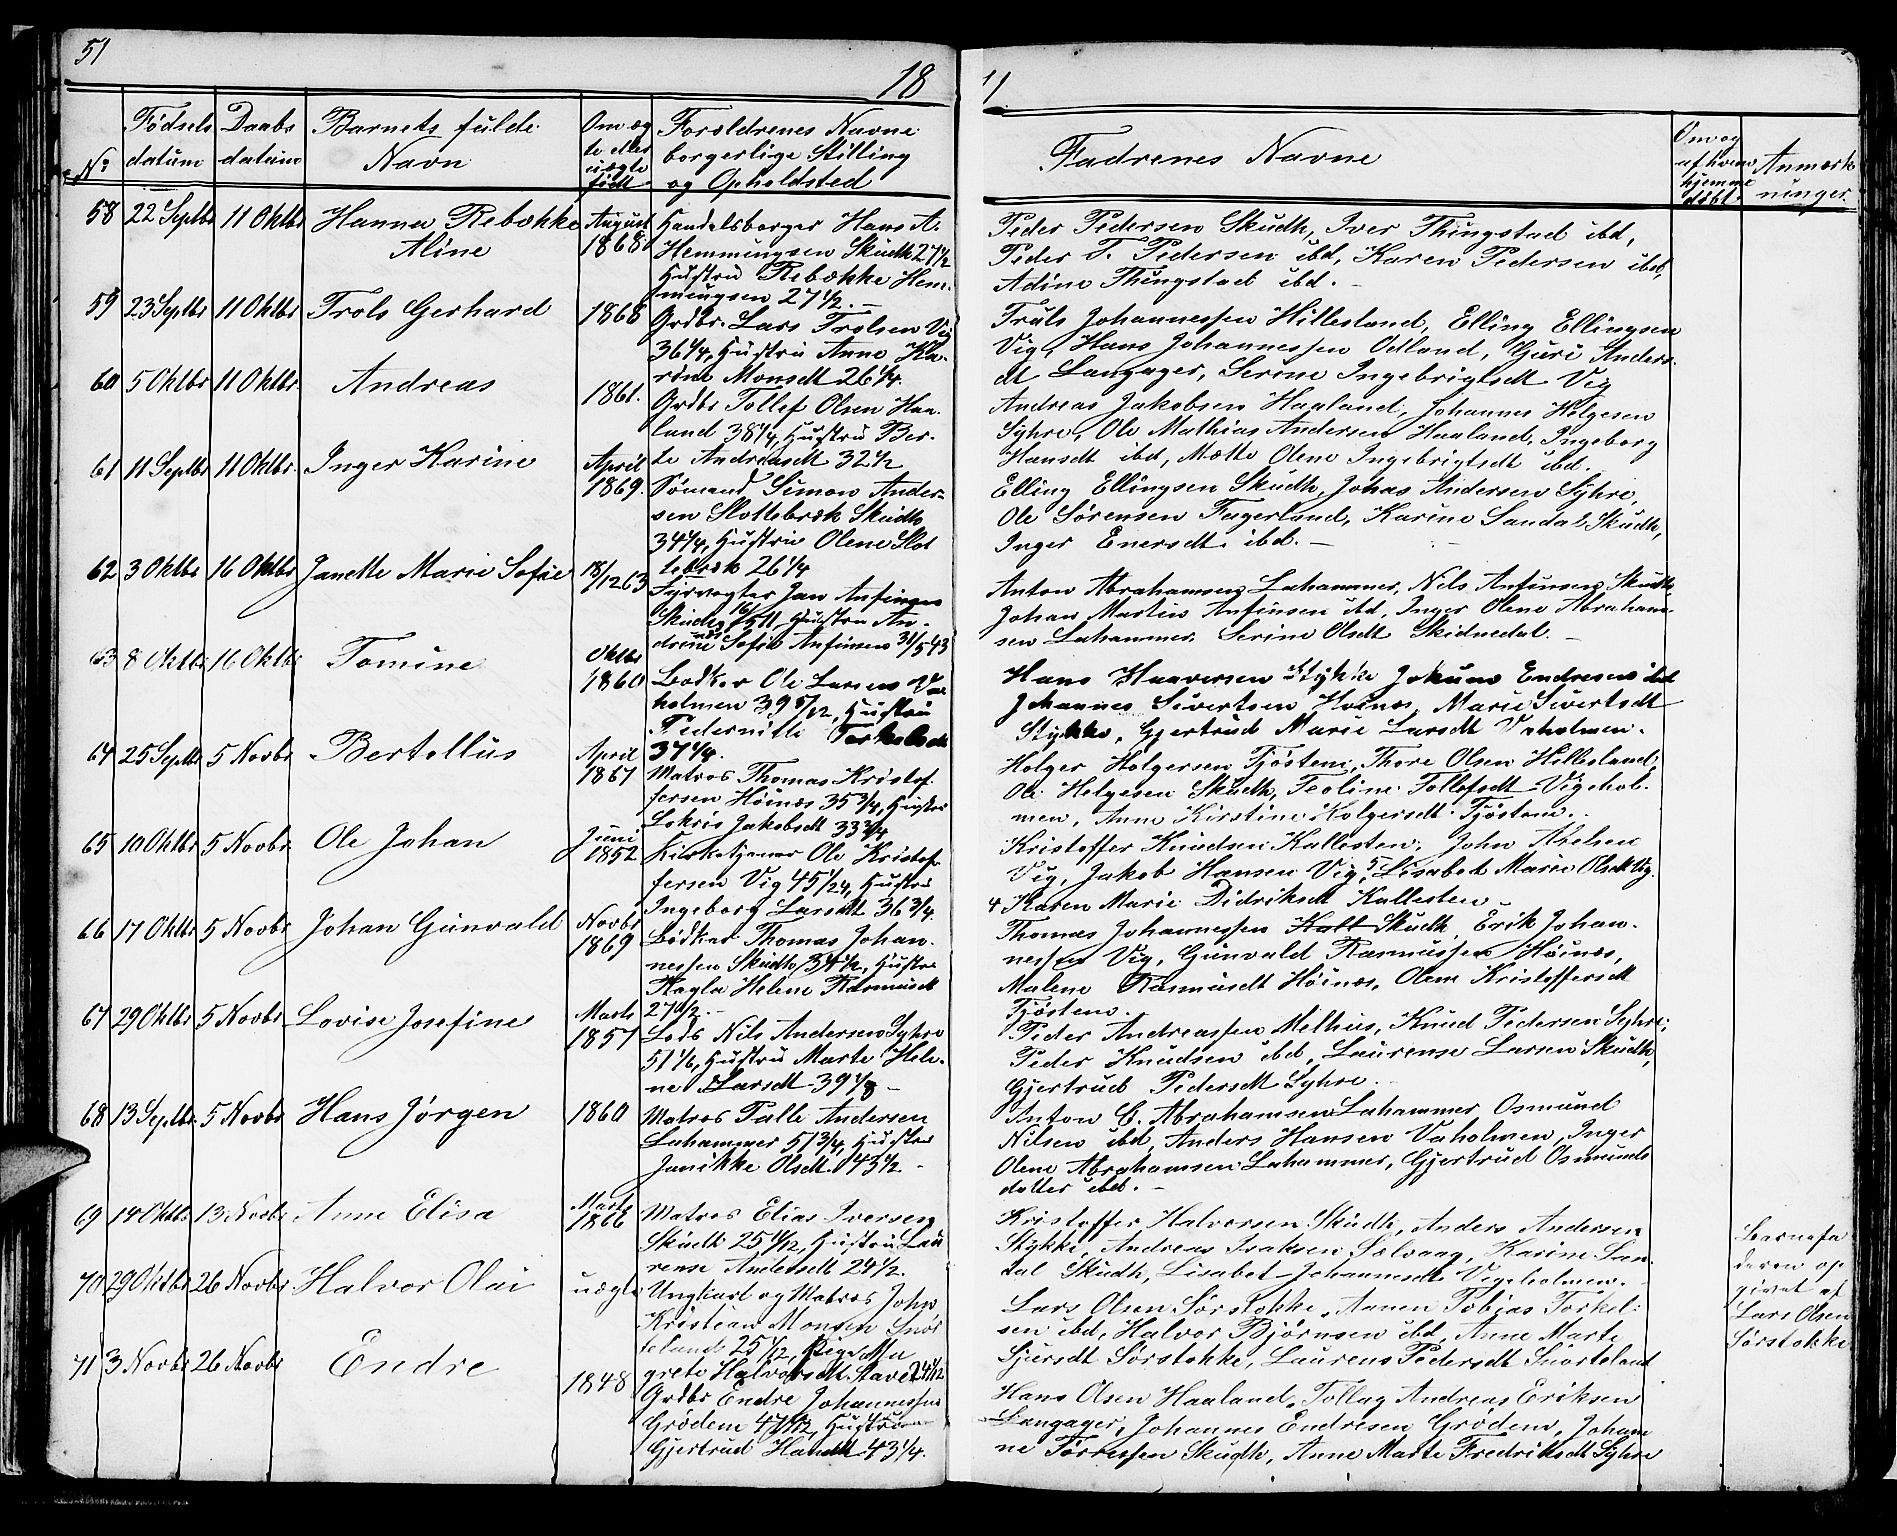 51
18
71
No
Fødsels datum
Daabs datum
Barnets fulde Navn
Om ægte eller uægte født
Forældrenes Navne borgerlige Stilling og Opholdsted
Fadrenes Navne
Om og af hvem hjemme døbt
Anmærkninger.
58 22 Septbr 11 Oktbr Hanna Rebække Aline August 1868
Handelsborger Hans A.
Hemmingsen Skudh 27 1/2
Hustru Rebække Hem-
mingsen 27 1/2. —
Peder Pedersen Skudh, Iver Thingstad ibd,
Peder T. Pedersen ibd, Karen Pedersen ibd,
Adine Thingstad ibd. —
59 23 Septbr 11 Oktbr Trols Gerhard 1868
Grdbr. Lars Trolsen Vig
36 1/4, Hustru Anne Ka-
rine Monsdt 26 1/4.
Truls Johannessen Hillesland, Elling Ellingsen
Vig, Hans Johannessen Odland, Guri Anders-
dt Langager, Serine Ingebrigtsdt Vig
60 5 Oktbr 11 Oktbr Andreas 1861.
Grdbr Tollef Olsen Haa-
land 38 1/4, Hustru Ber-
te Andreasdt 32 1/2
Andreas Jakobsen Haaland, Johannes Helgesen
Syhre, Ole Mathias Andersen Haaland, Ingeborg
Hansdt ibd, Mætte Olene Ingebrigtsdt ibd.
61 11 Septbr 11 Oktbr. Inger Karine April 1869.
Sømand Simon Ander-
sen Slottebræk Skudh
34 1/4, Hustru Olene Slot
tebræk 26 1/4
Elling Ellingsen Skudh, Johas Andersen Syhre,
Ole Sørensen Fagerland, Karine Sandal Skudh,
Inger Enersdt ibd. —
62 3 Oktbr 16 Oktbr Janette Marie Sofie 18/12 63
Fyrvogter Jan Anfinsen
Hustru An-
drine Sofie Anfinsen 31/5 43
Anton Abrahamsen Lahammer, Nils Anfinsen Skudh
Johan Martin Anfinsen ibd, Inger Olene Abraham-
sen Lahammer Serine Olsdt Skidnedal. —
63 8 Oktbr 16 Oktbr Tomine Oktbr 1860
Bødker Ole Larsen Va-
holmen 39 5/12, Hustru
Pedernille Torkelsdt
37 1/4.
Hans Haaversen Stykke Jokum Endresen ibd
Johannes Sivertsen Høinæs, Marie Sivertsdt
Stykke, Gjertrud Marie Larsdt Vaholmen.
64 25 Septbr 5 Novbr Bertellus April 1867
Matros Thomas Kristof-
fersen Høinæs 35 3/4, Hustru
Lokris Jakobsdt 33 3/4
Holger Holgersen Tjøstem, Thore Olsen Hillesland,
Ole Helgesen Skudh, Teoline Tollefsdt Vigehol-
men, Anne Kirstine Holgersdt Tjøstem.
65 10 Oktbr 5 Novbr. Ole Johan Juni 1852
Kirketjener Ole Kristof-
fersen Vig 45 1/24, Hustru
Ingeborg Larsdt 36 3/4.
Kristoffer Knudsen Kallesten, John Axelsen
Vig, Jakob Hansen Vig, 5 Lisabet Marie Olsdt Vig.
4 Karen Marie Didriksdt Kallesten
66 17 Oktbr 5 Novbr Johan Gunvald Novbr 1869
Bødker Thomas Johan-
nessen Skudh, 34 1/2, Hustru
Ragla Helene Rasmusdt
27 1/2. —
Thomas Johannessen Kall Skudh, Erik Johan-
nessen Vig, Gunvald Rasmussen Høinæs,
Malene Rasmusdt Høinæs, Olene Kristoffersdt
Tjøstem.
67 29 Oktbr 5 Novbr Lovise Josefine Marts 1857
Lods Nils Andersen Syhre
51 1/6, Hustru Marte Hele-
ne Larsdt 39 1/8 —
Peder Andreassen Melhus, Knud Pedersen Syhre,
Peder Knudsen ibd, Laurense Larsen Skudh,
Gjertrud Pedersdt Syhre. —
68 13 Septbr. 5 Novbr Hans Jørgen 1860
Matros Palle Andersen
Lahammer 51 3/4, Hustru
Janikke Olsdt. 43 1/2 —
Anton C. Abrahamsen Lahammer Osmund
Nilsen ibd, Anders Hansen Vaholmen, Inger
Olene Abrahamsen Lahammer, Gjertrud Osmunds
datter ibd. —
69 14 Oktbr 13 Novbr Anne Elisa Marts 1866
Matros Elias Iversen
Skudh 25 1/12, Hustru Lau
rense Andersdt 24 1/2.
Kristoffer Halvorsen Skudh, Anders Andersen
Stykke, Andreas Isaksen Sælvaag, Karine San-
dal Skudh, Lisabet Johannesdt Vigeholmen.
70 29 Oktbr 26 Novbr Halvor Olai uægte
Ungkarl og Matros John
Kristian Monsen Snør
teland 25 1/12, Pige Ma
grete Halvorsdt Stave 24 1/2
Lars Olsen Sørstokke, Aanen Tobias Torkel-
sen ibd, Halvor Bjørnsen ibd, Anne Marte
Sjursdt Sørstokke, Laurens Pedersdt Snørteland
Barnefa
deren op
givet af
Lars Olsen
Sørstokke
71 3 Novbr 26 Novbr Endre 1848
Grdbr Endre Johannessen
Grødem 47 1/12, Hustru
Gjertrud Hansdt 43 1/4.
Hans Olsen Haaland, Tollag Andreas Eriksen
Langager, Johannes Endresen Grødem, Johan
ne Tørressen Skudh, Anne Marte Fredriksdt Syhre